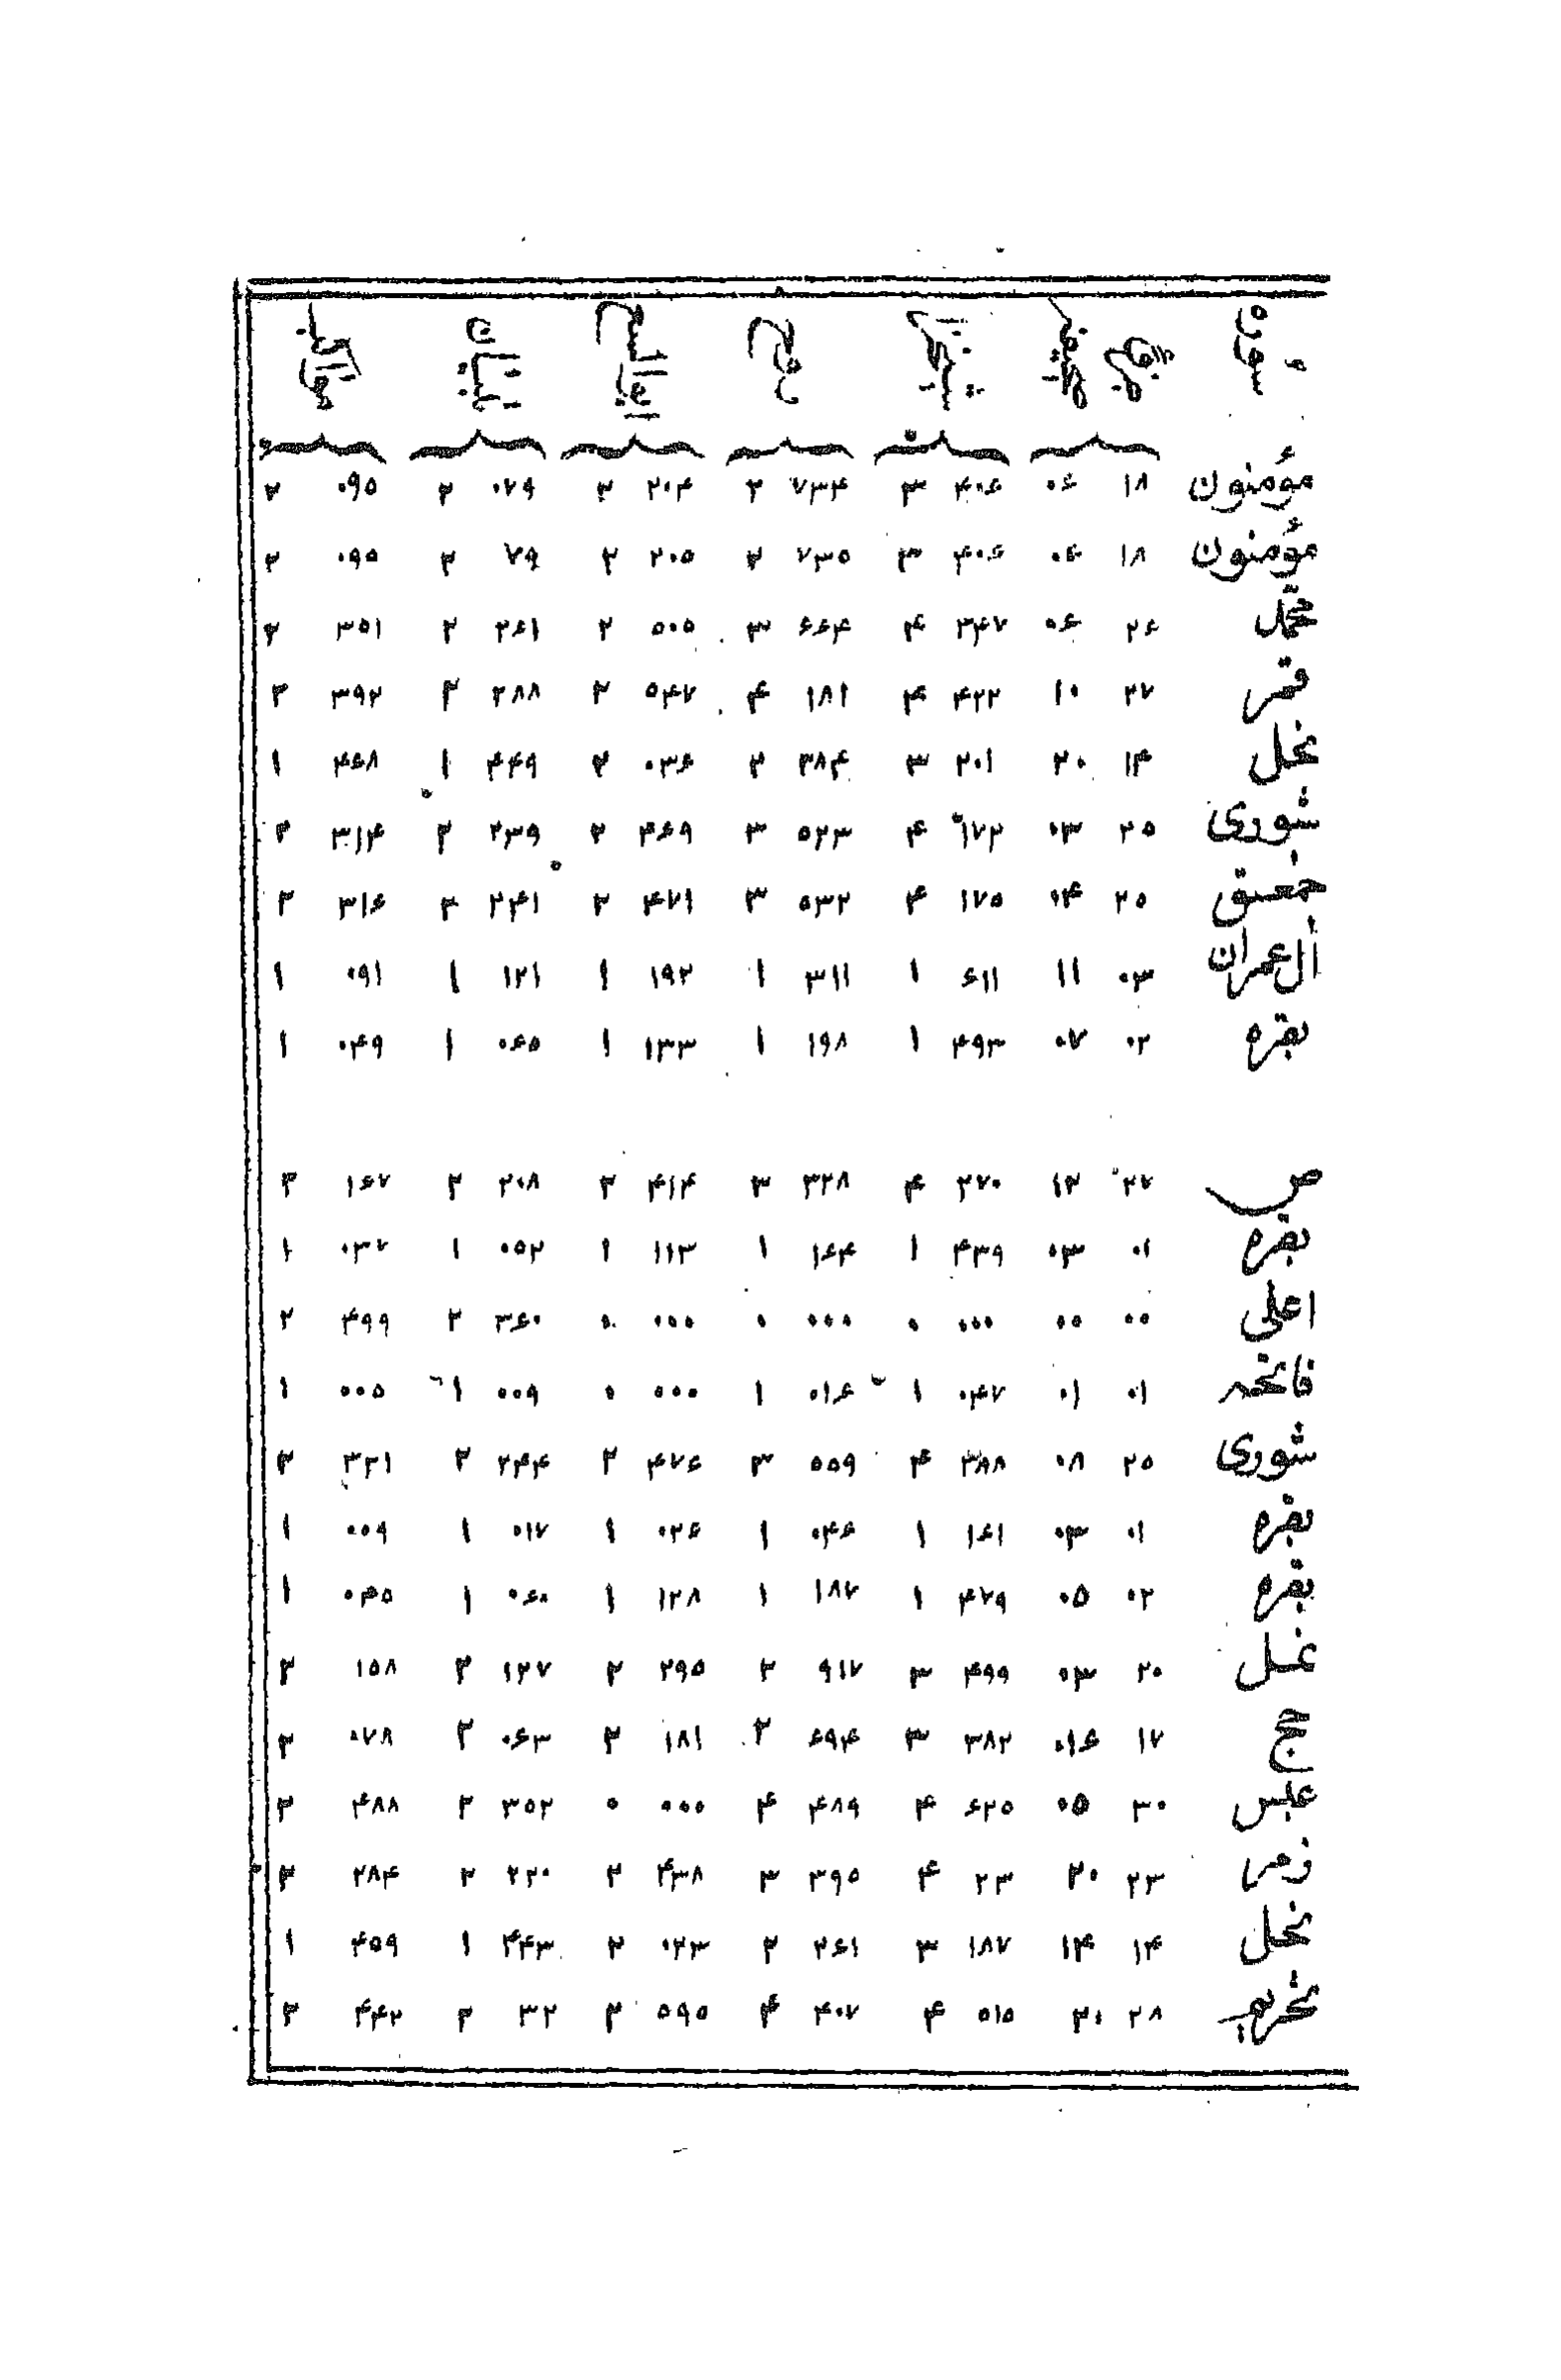 مؤمنون ۱۸ ۰۶ ۴۰۶ ۳ ۷۳۴ ۲ ۲۰۴ ۲ ۰۷۹ ۲ ۰۹۵ ۲
مؤمنون ۱۸ ۰۶ ۴۰۶ ۳ ۷۳۵ ۲ ۲۰۵ ۲ ۷۹ ۲ ۰۹۵ ۲
محمّد ۲۶ ۰۶ ۳۴۷ ۴ ۶۶۴ ۳ ۵۰۵ ۲ ۲۶۱ ۲ ۳۵۱ ۲
قمر ۲۷ ۱۰ ۴۲۲ ۴ ۱۸۱ ۴ ۵۴۷ ۲ ۲۸۸ ۲ ۳۹۲ ۲
نحل ۱۴ ۲۰ ۲۰۱ ۳ ۳۸۴ ۲ ۰۳۶ ۲ ۴۴۹ ۱ ۴۶۸ ۱
شوری ۲۵ ۰۳ ۱۷۲ ۴ ۵۲۳ ۳ ۴۶۹ ۲ ۲۳۹ ۲ ۳۱۴ ۲
حمعسق ۲۵ ۰۴ ۱۷۵ ۴ ۵۳۲ ۳ ۴۷۱ ۲ ۲۴۱ ۲ ۳۱۶ ۲
آل عمران ۰۳ ۱۱ ۶۱۱ ۱ ۳۱۱ ۱ ۱۹۲ ۱ ۱۲۱ ۱ ۰۹۱ ۱
بقره ۰۲ ۰۷ ۴۹۳ ۱ ۱۹۸ ۱ ۱۳۳ ۱ ۰۶۵ ۱ ۰۴۹ ۱
ص ۲۷ ۱۲ ۲۷۰ ۴ ۳۲۸ ۳ ۴۱۴ ۲ ۲۰۸ ۲ ۱۶۷ ۲
بقره ۰۱ ۰۳ ۴۳۹ ۱ ۱۶۴ ۱ ۱۱۳ ۱ ۰۵۲ ۱ ۰۳۷ ۱
اعلی ۰۰ ۰۰ ۰۰۰ ۰ ۰۰۰ ۰ ۰۰۰ ۰ ۳۶۰ ۲ ۴۹۹ ۲
فاتحه ۰۱ ۰۱ ۰۴۷ ۱ ۰۱۶ ۱ ۰۰۰ ۰ ۰۰۹ ۱ ۰۰۵ ۱
شوری ۲۵ ۰۸ ۳۸۸ ۴ ۵۵۹ ۳ ۴۷۶ ۲ ۲۴۴ ۲ ۳۲۱ ۲
بقره ۰۱ ۰۳ ۱۶۱ ۱ ۰۴۶ ۱ ۰۲۶ ۱ ۰۱۷ ۱ ۰۰۹ ۱
بقره ۰۲ ۰۵ ۴۷۹ ۱ ۱۸۷ ۱ ۱۲۸ ۱ ۰۶۰ ۱ ۰۴۵ ۱
نمل ۲۰ ۰۳ ۴۹۹ ۳ ۹۱۷ ۲ ۲۹۵ ۲ ۱۲۷ ۲ ۱۵۸ ۲
حج ۱۷ ۰۱۶ ۳۸۲ ۳ ۶۹۴ ۲ ۱۸۱ ۲ ۰۶۳ ۲ ۰۷۸ ۲
عبس ۳۰ ۰۵ ۶۲۵ ۴ ۴۸۹ ۴ ۰۰۰ ۰ ۳۵۲ ۲ ۴۸۸ ۲
زمر ۲۳ ۲۰ ۲۳ ۴ ۳۹۵ ۳ ۴۳۸ ۲ ۲۲۰ ۲ ۲۸۴ ۲
نحل ۱۴ ۱۴ ۱۸۷ ۳ ۲۶۱ ۲ ۰۲۳ ۲ ۴۴۳ ۱ ۴۵۹ ۱
تحریم ۲۸ ۲۰ ۵۱۵ ۴ ۴۰۷ ۴ ۵۹۵ ۲ ۳۲ ۲ ۴۴۲ ۲